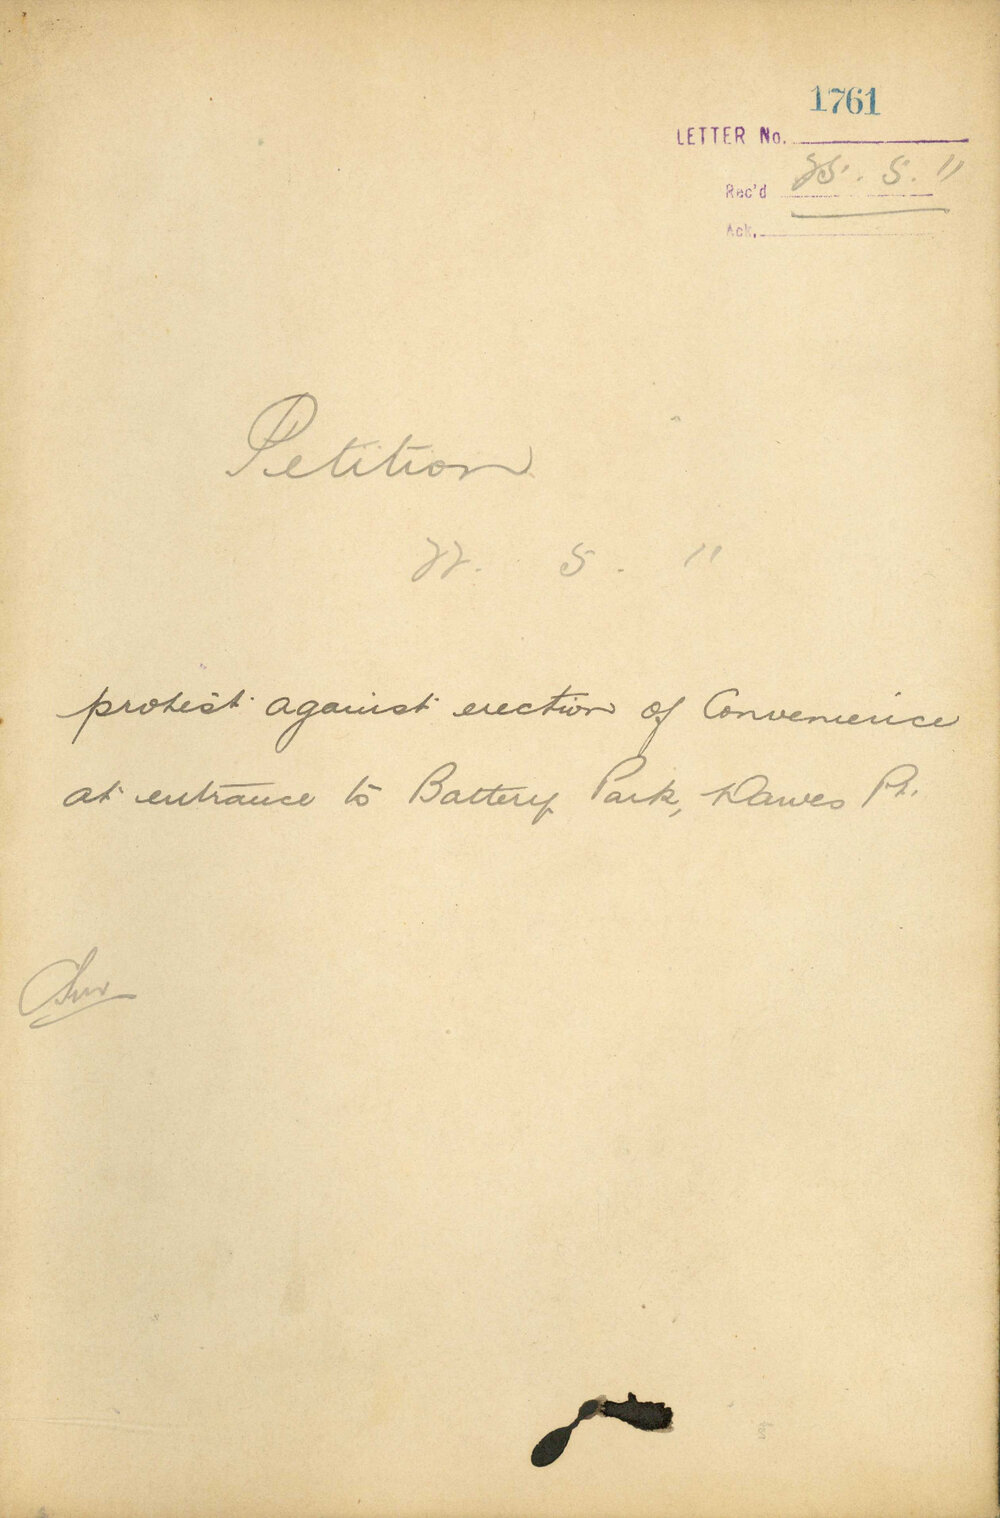 1761
LETTER No.
Rec'd 25. 5. 11
Ack.
Petition
22. 5. 11
protest against erection of Convenience
at entrance to Battery Park, Dawes Pt.